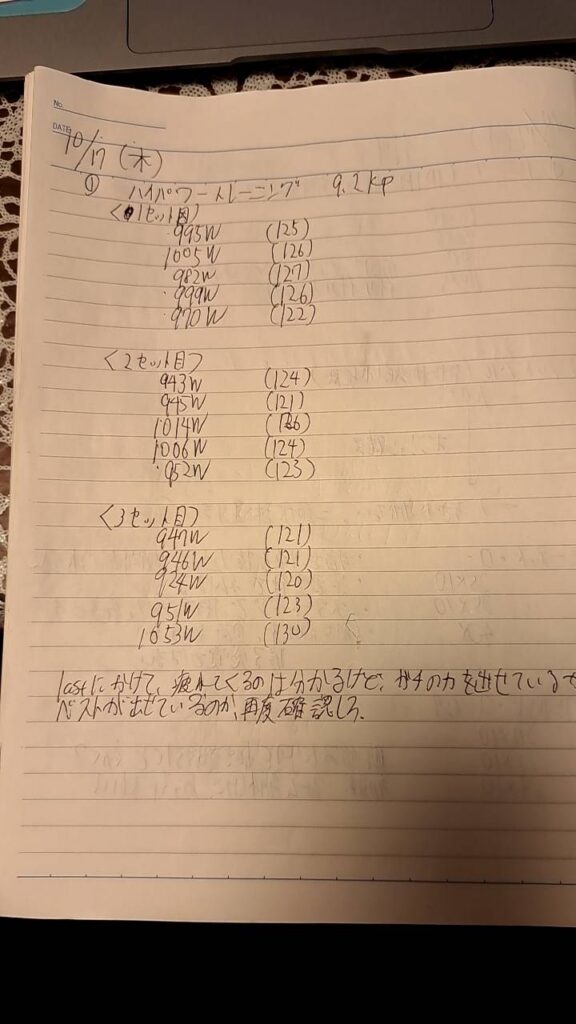 No.
DATE
10/17(木)
① ハイパワートレーニング 9.2kp
<1セット目>
995W (125)
1005W (126)
982W (127)
999W (126)
970W (122)
<2セット目>
943W (124)
945W (121)
1014W (126)
1006W (124)
952W (123)
<3セット目>
947W (121)
946W (121)
924W (120)
951W (123)
1053W (130)
lastにかけて、疲れてくるのは分かるけど、ガチの力を出せている
ベストが出せているのか、再度確認しろ。